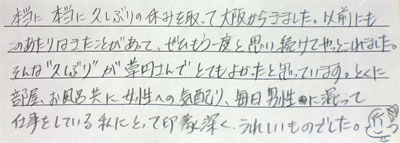 本当に 本当に久しぶりの休みを取って大阪からきました。以前にも
このあたりはきたことがあって、ぜひもう一度と思い続けてやっとこれました。
そんな"久しぶり"が草円さんでとてもよかったと思っています。とくに
部屋、お風呂共に女性への気配り、毎日男性に混じって
仕事をしている私にとって印象深く、うれしいものでした。